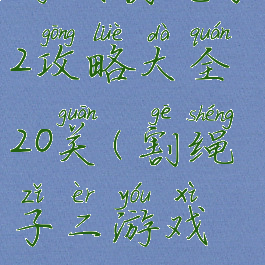 gōng lüè dà quán
2攻略大全
guān gē shéng
20关(割绳
zǐ èr yóu xì
子二游戏